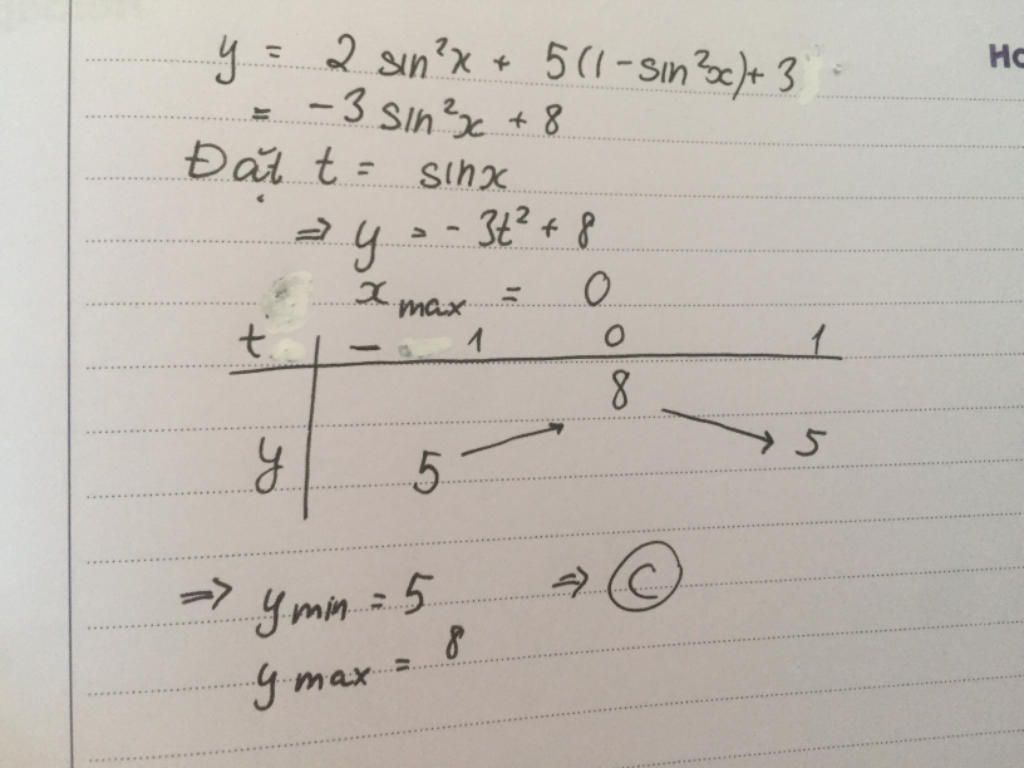 y = 2 sin²x + 5(1-sin²x)+3
= -3 sin²x + 8
Đặt t = sinx
⇒ y = -3t² + 8
x max = 0
t - 1 0 1
8
y 5 5
⇒ y min = 5 ⇒ C
y max = 8